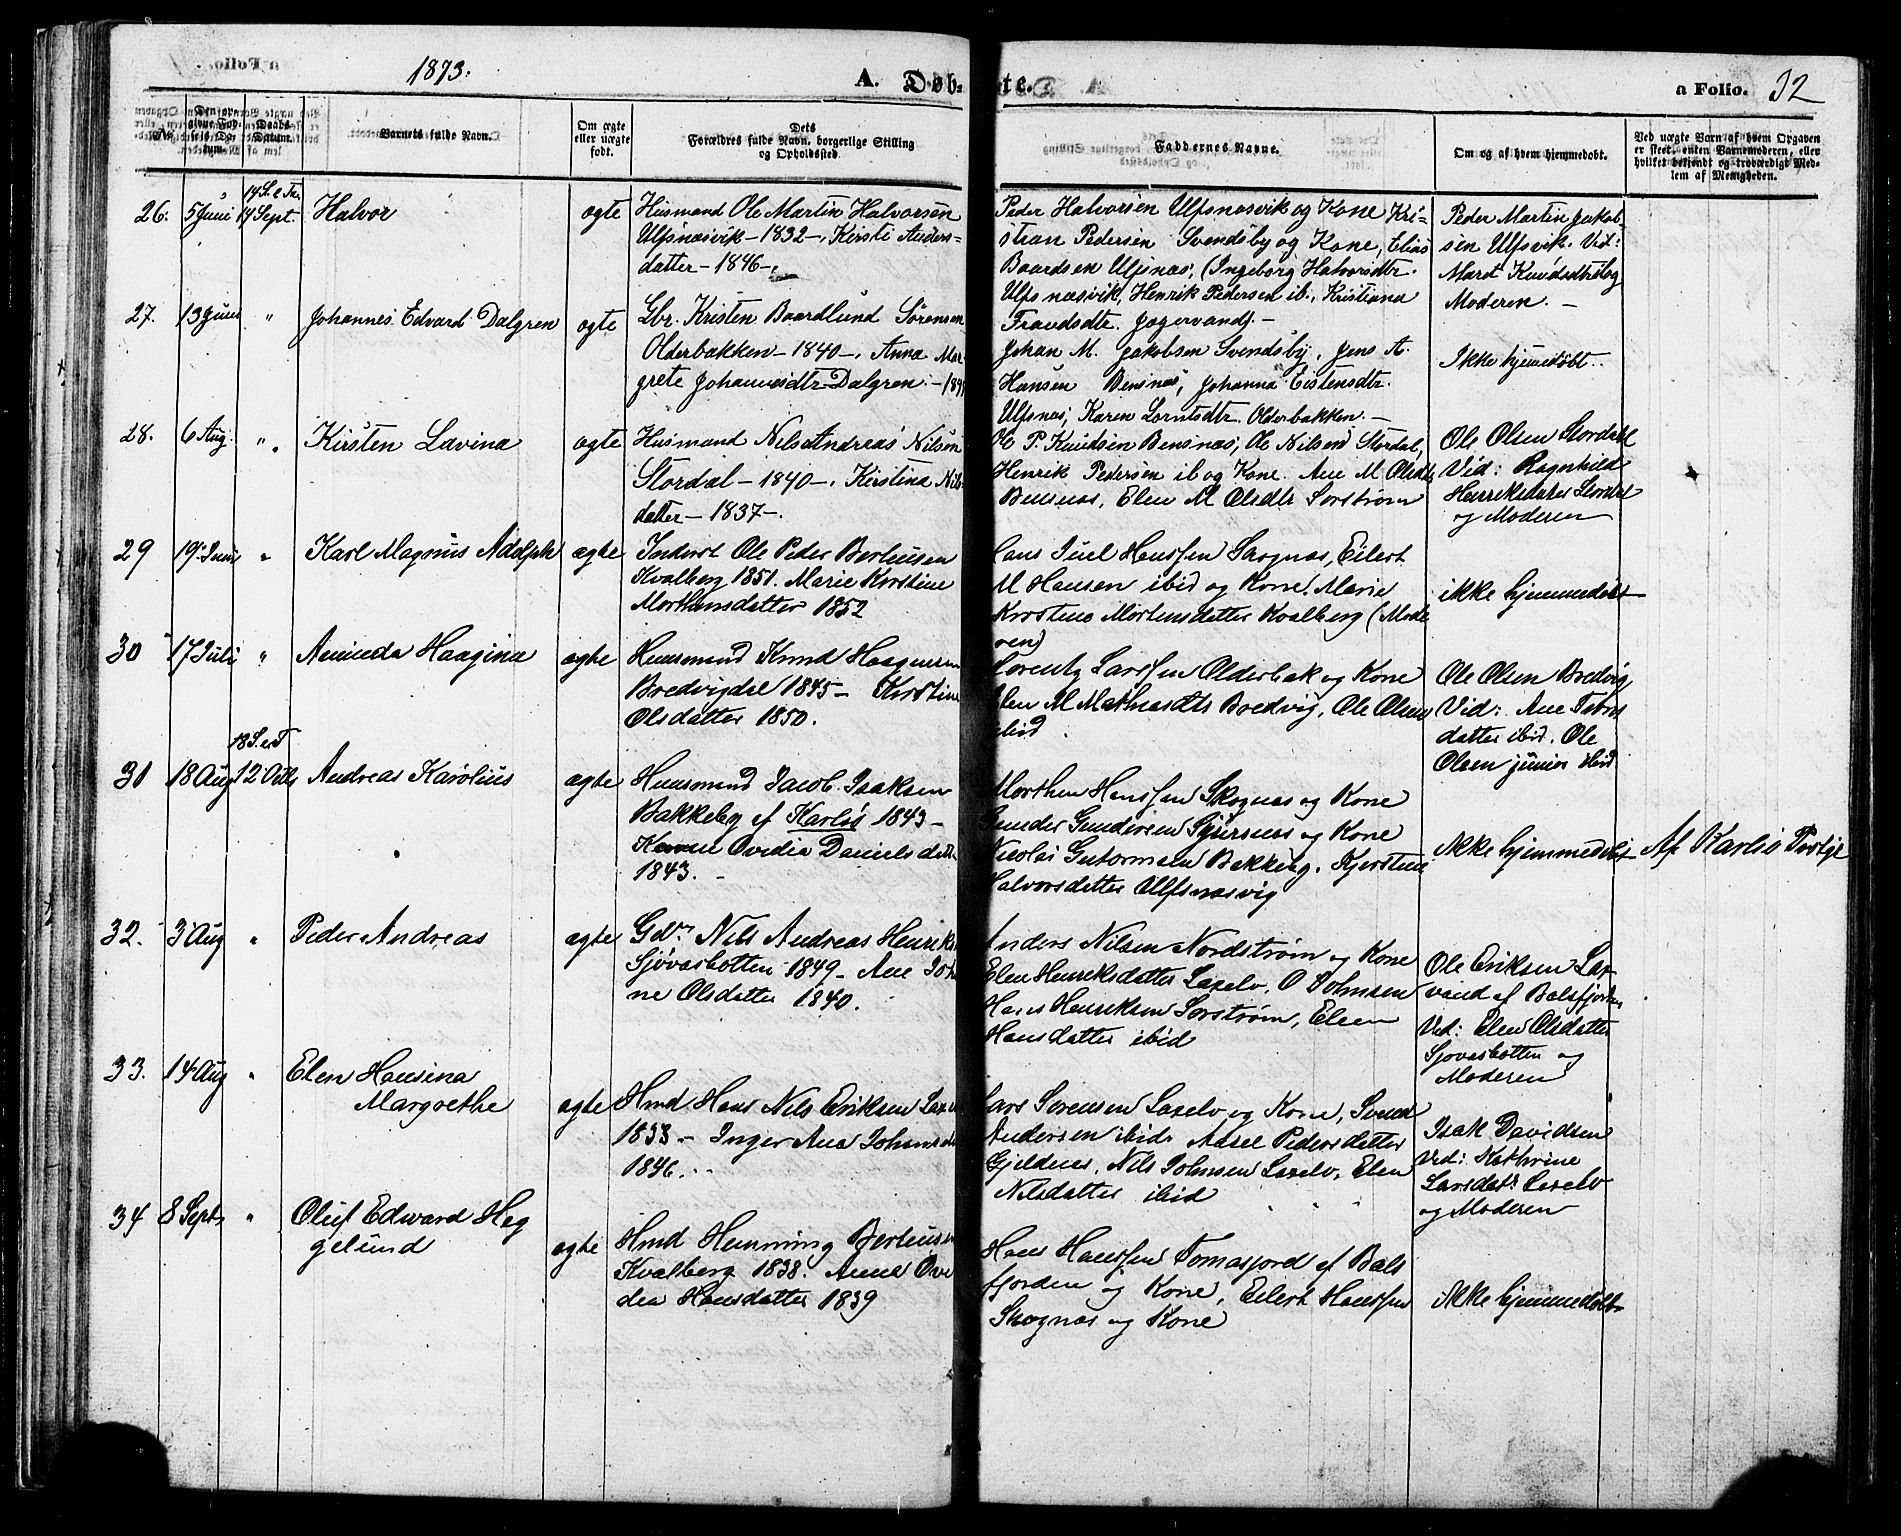 1873.
A. Døb-
te.
a Folio. 32
No.
Den opgivne Fødsels Datum.
Daabs Datum.
Barnets fulde Navn.
Om ægte eller uægte født.
Dets Forældres fulde Navn, borgerlige Stilling og Opholdssted.
Faddernes Navne.
Om og af hvem hjemmedøbt.
Ved uægte Barn af hvem Opgaven er skeet, enten Barnemoderen, eller hvilket bekjendt og troværdigt Medlem af Menigheden.
14 S. e Tr.
26. 5 Juni 14 Sept. Halvor ægte
Husmand Ole Martin Halvorsen
Ulfsnæsvik - 1832 -, Kirsti Anders=
datter - 1846 -,
Peder Halvorsen Ulfsnæsvik og Kone, Kri=
stian Pedersen Svendsby og Kone, Elias
Baardsen Ulfsnæs, Ingeborg Halvorsdtr.
Ulfsnæsvik, Henrik Pedersen ib., Kristiana
Jægervand. -
Peder Martin Jakob-
sen Ulfsvik. Vid:
Moderen. -
27. 13 Juni " Johannes Edvard Dalgren ægte
Lbr. Kristen Baardlund Sørensen
Olderbakken - 1840 -, Anna Mar-
grete Johannesdtr Dalgren -
Johan M. Jakobsen Svendsby, Jens A.
Hansen Bensnæs, Johanna Eistensdtr.
Ulfsnæs, Karen Lorntsdtr. Olderbakken. -
Ikke hjemmedøbt.
28. 6 Aug. " Kirsten Lavina ægte
Husmand Nils Andreas Nilsen
Stordal - 1840 -, Kirstina Nils-
datter - 1837 -.
Ole P. Knudsen Bensnæs, Ole Nilsen Stordal,
Henrik Pedersen ib og Kone. Ane M Olsdtr
Bensnæs, Elen M Olsdtr Sørstrøm
Ole Olsen Stordal
Vid: Ragnhild
Henriksdatter Stordal
og Moderen
29 19 Juni " Karl Magnus Adolph ægte
Inderst Ole Peder Berteusen
Kvalberg 1851. Marie Kirstine
Morthensdatter 1852
Hans Juel Hanssen Skognæs, Eilert
M Hansen ibid og Kone. Marie
Kirstine Mortensdatter Kvalberg (Mode
ren)
ikke hjemmedøbt
30 17 Juli " Aminda Haagina ægte
Huusmand Knud Haagensen
Bredvigdal 1845 - Kirstine
Olsdatter 1850.
Lorentz Larssen Olderbak og Kone
Elen M Mathiasdtr Bredvig, Ole Olsen
ibid
Ole Olsen Bredvig
Vid: Ane
datter ibid. Ole
Olsen junior ibid
18 S. e T
31 18 Aug 12 Octb Andreas Karolius ægte
Huusmand Jacob Isaksen
Bakkeby af Karlsö 1843 -
Ovedia Danielsdatter
1843. -
Morthen Hanssen Skognæs og Kone
Gunder Gundersen og Kone
Nicolai Gutormsen Bakkeby. Kjerstine
Halvorsdatter Ulfsnæsvig
Ikke hjemmedøbt
Af Karlsö
32. 3 Aug " Peder Andreas ægte
Gdbr. Nils Andreas Henriks
Sjøvasbotten 1849 - Ane Joha
ne Olsdatter 1840.
Anders Nilsen Nordstrøm og Kone
Elen Henriksdatter Laxelv. O Johnsen
Hans Henriksen Sørstrøm, Elen
Hansdatter ibid
Ole Eriksen Lax-
vand af Balsfjorden
Ved: Elen Olsdatter
Sjovasbotten og
Moderen
33. 14 Aug " Elen Hansina
Margrethe ægte
Hmd Hans Nils Eriksen Laxe
1833 - Inger Ana Johansda
1846. . .
Lars Sørensen Laxelv og Kone, Svend
Andersen ibid. Axsel Pedersdatter
Gjeldnes. Nils Johnsen Laxelv. Elen
Nilsdatter ibid
Isak Davidsen
Ved: Kathrine
Larsdatr Laxelv
og Moderen
34 8 Septr " Oluf Edward Hag
gelund ægte
Hmd Hemming Berteusen
Kvalberg 1838. Anna Ove
dia Hansdatter 1839
Hans Hanssen Tomasjord af Bals
fjorden og Kone, Eilert Hanssen
Skognæs og Kone
Ikke hjemmedøbt